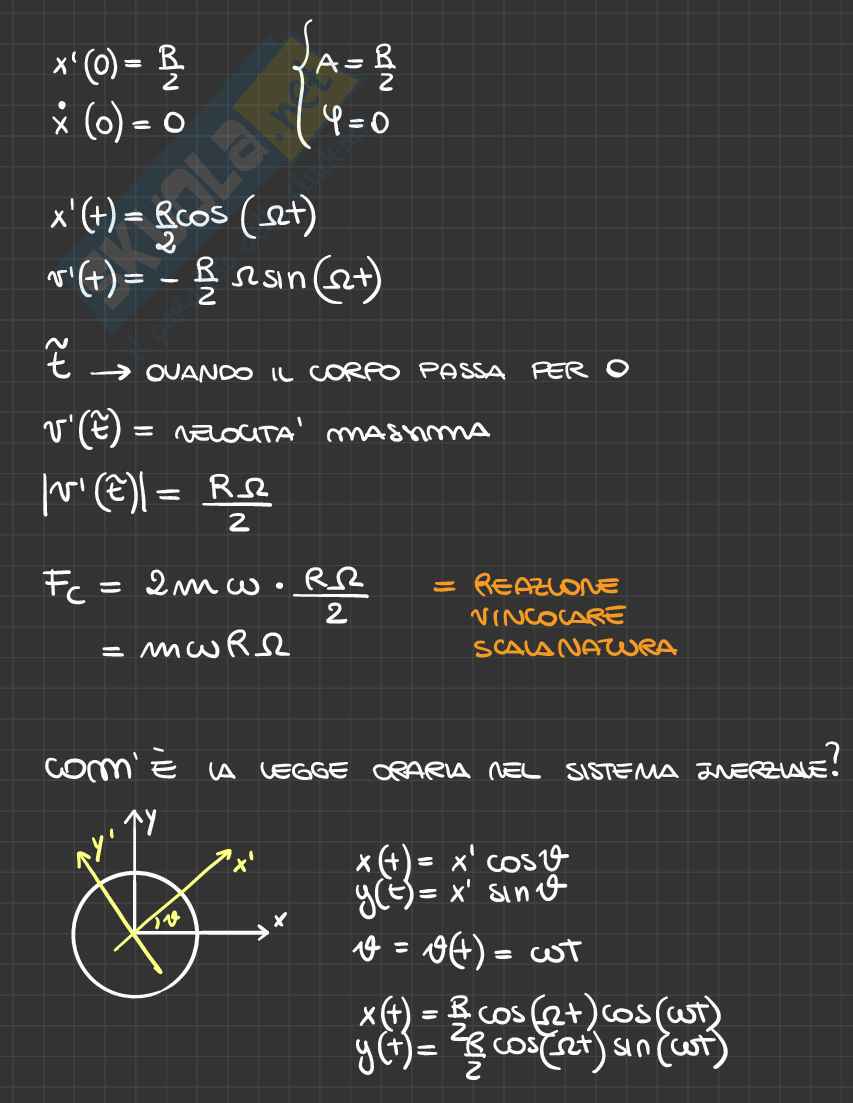 x'(0) = R/2 { A = R/2
ẋ(0) = 0 φ = 0
x'(t) = R/2 cos (Ωt)
v'(t) = - R/2 Ω sin (Ωt)
t̃ → QUANDO IL CORPO PASSA PER O
v'(t̃) = VELOCITA' MASSIMA
|v'(t̃)| = RΩ/2
Fc = 2mω · RΩ/2 = REAZIONE
VINCOLARE
= mωRΩ SCALANATURA
COM' È LA LEGGE ORARIA NEL SISTEMA INERZIALE?
y
y'
x'
ϑ
x
x(t) = x' cosϑ
y(t) = x' sinϑ
ϑ = ϑ(t) = ωt
x(t) = R/2 cos(Ωt) cos(ωt)
y(t) = R/2 cos(Ωt) sin(ωt)
SKUOLA.net